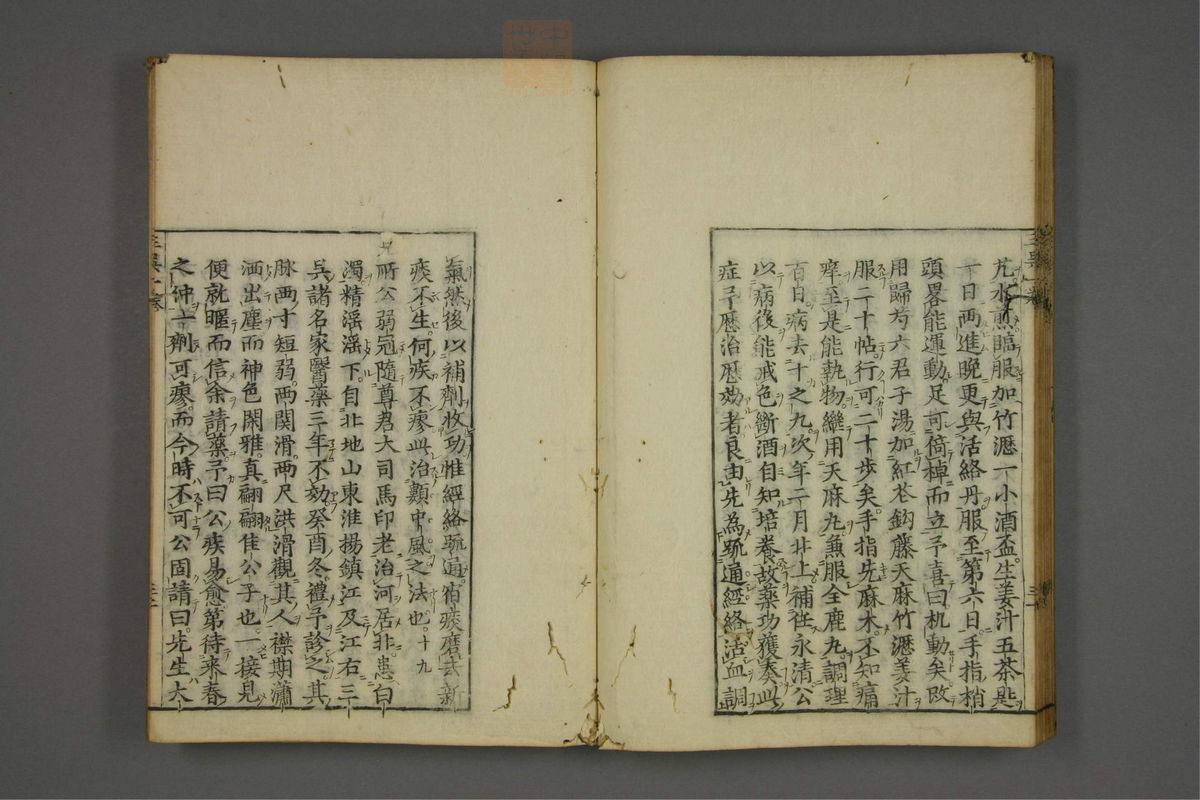 芃水煎臨服加竹瀝一小酒盃生姜汁五茶匙
一日兩進晚更與活絡丹服至第六日手指稍
頭畧能運動足可倚棹而立予喜曰机動矣改
用歸芍六君子湯加紅花鈎藤天麻竹瀝姜汁
服二十帖行可二十步矣手指先麻木不知痛
痒至是能執物繼用天麻九兼服全鹿九調理
百日病去十之九次年二月北上補任永清公
以病後能戒色斷酒自知培養故藥功獲奏此
症予歷治歷効者良由先為疏通經絡活血調
氣然後以補劑收功惟經絡疏通宿痰磨去新
痰不生何疾不瘳此治類中風之法也十九
所公弱冠隨尊君大司馬印老治河居北患白
濁精滛滛下自北地山東淮揚鎮江及江右三
吳諸名家醫藥三年不効癸酉冬禮予診之其
脉兩寸短弱兩関滑兩尺洪滑觀其人襟期瀟
洒出塵而神色閑雅真翩翩佳公子也一接見
便就暱而信余請藥予曰公疾易愈第待來春
之仲一劑可瘳而今時不可公固請曰先生大